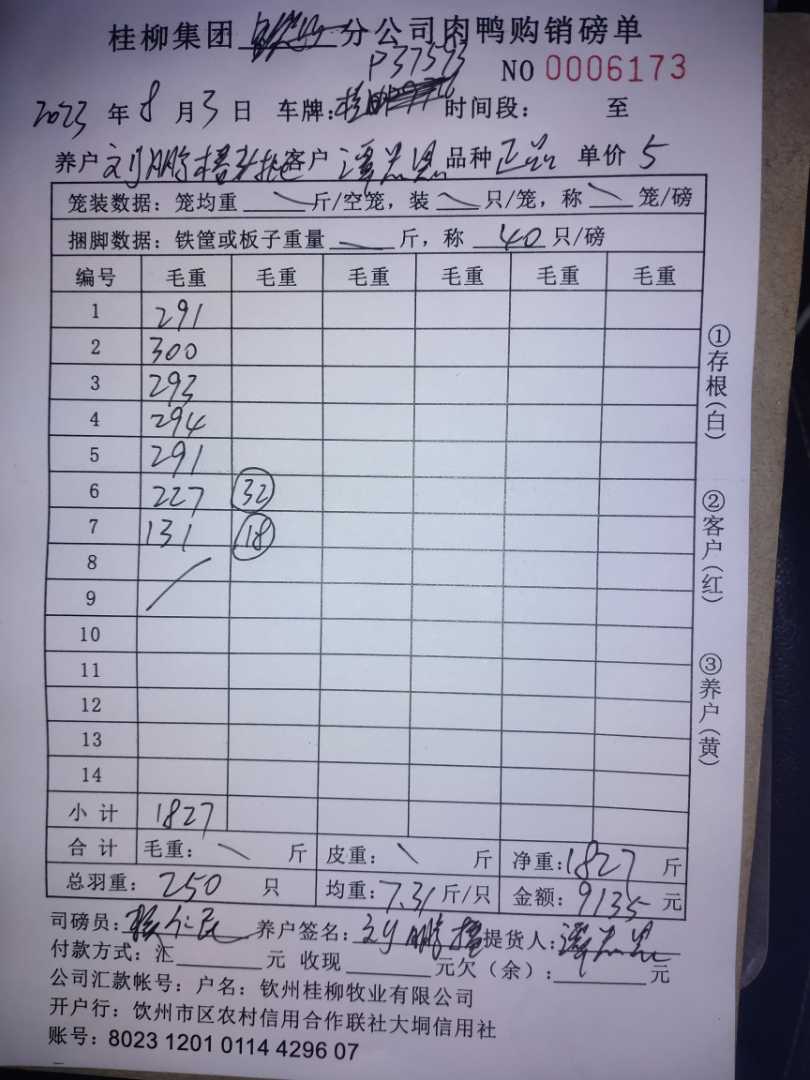 桂柳集团 分公司肉鸭购销磅单
P37593
NO 0006173
2023 年 8 月 3 日 车牌: 时间段: 至
养户 刘鹏 客户 品种 正品 单价 5
笼装数据: 笼均重 斤/空笼, 装 只/笼, 称 笼/磅
捆脚数据: 铁筐或板子重量 斤, 称 40 只/磅
编号 毛重 毛重 毛重 毛重 毛重 毛重
1 291
2 300
3 293
4 294
5 291
6 227 32
7 131 18
8
9
10
11
12
13
14
小计 1827
合计 毛重: 斤 皮重: 斤 净重: 1827 斤
总羽重: 250 只 均重: 7.31 斤/只 金额: 9135 元
司磅员: 养户签名: 刘鹏 提货人:
付款方式: 汇 元 收现 元欠(余): 元
公司汇款帐号: 户名: 钦州桂柳牧业有限公司
开户行: 饮州市区农村信用合作联社大垌信用社
账号: 8023 1201 0114 4296 07
①存根(白)
②客户(红)
③养户(黄)